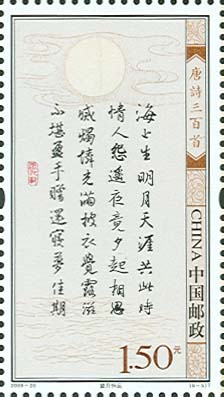 唐詩三百首
海上生明月天涯共此時
情人怨遥夜竟夕起相思
滅燭憐光滿披衣覺露滋
不堪盈手贈還寢夢佳期
CHINA 中国邮政
1.50元
2009-20
望月怀远